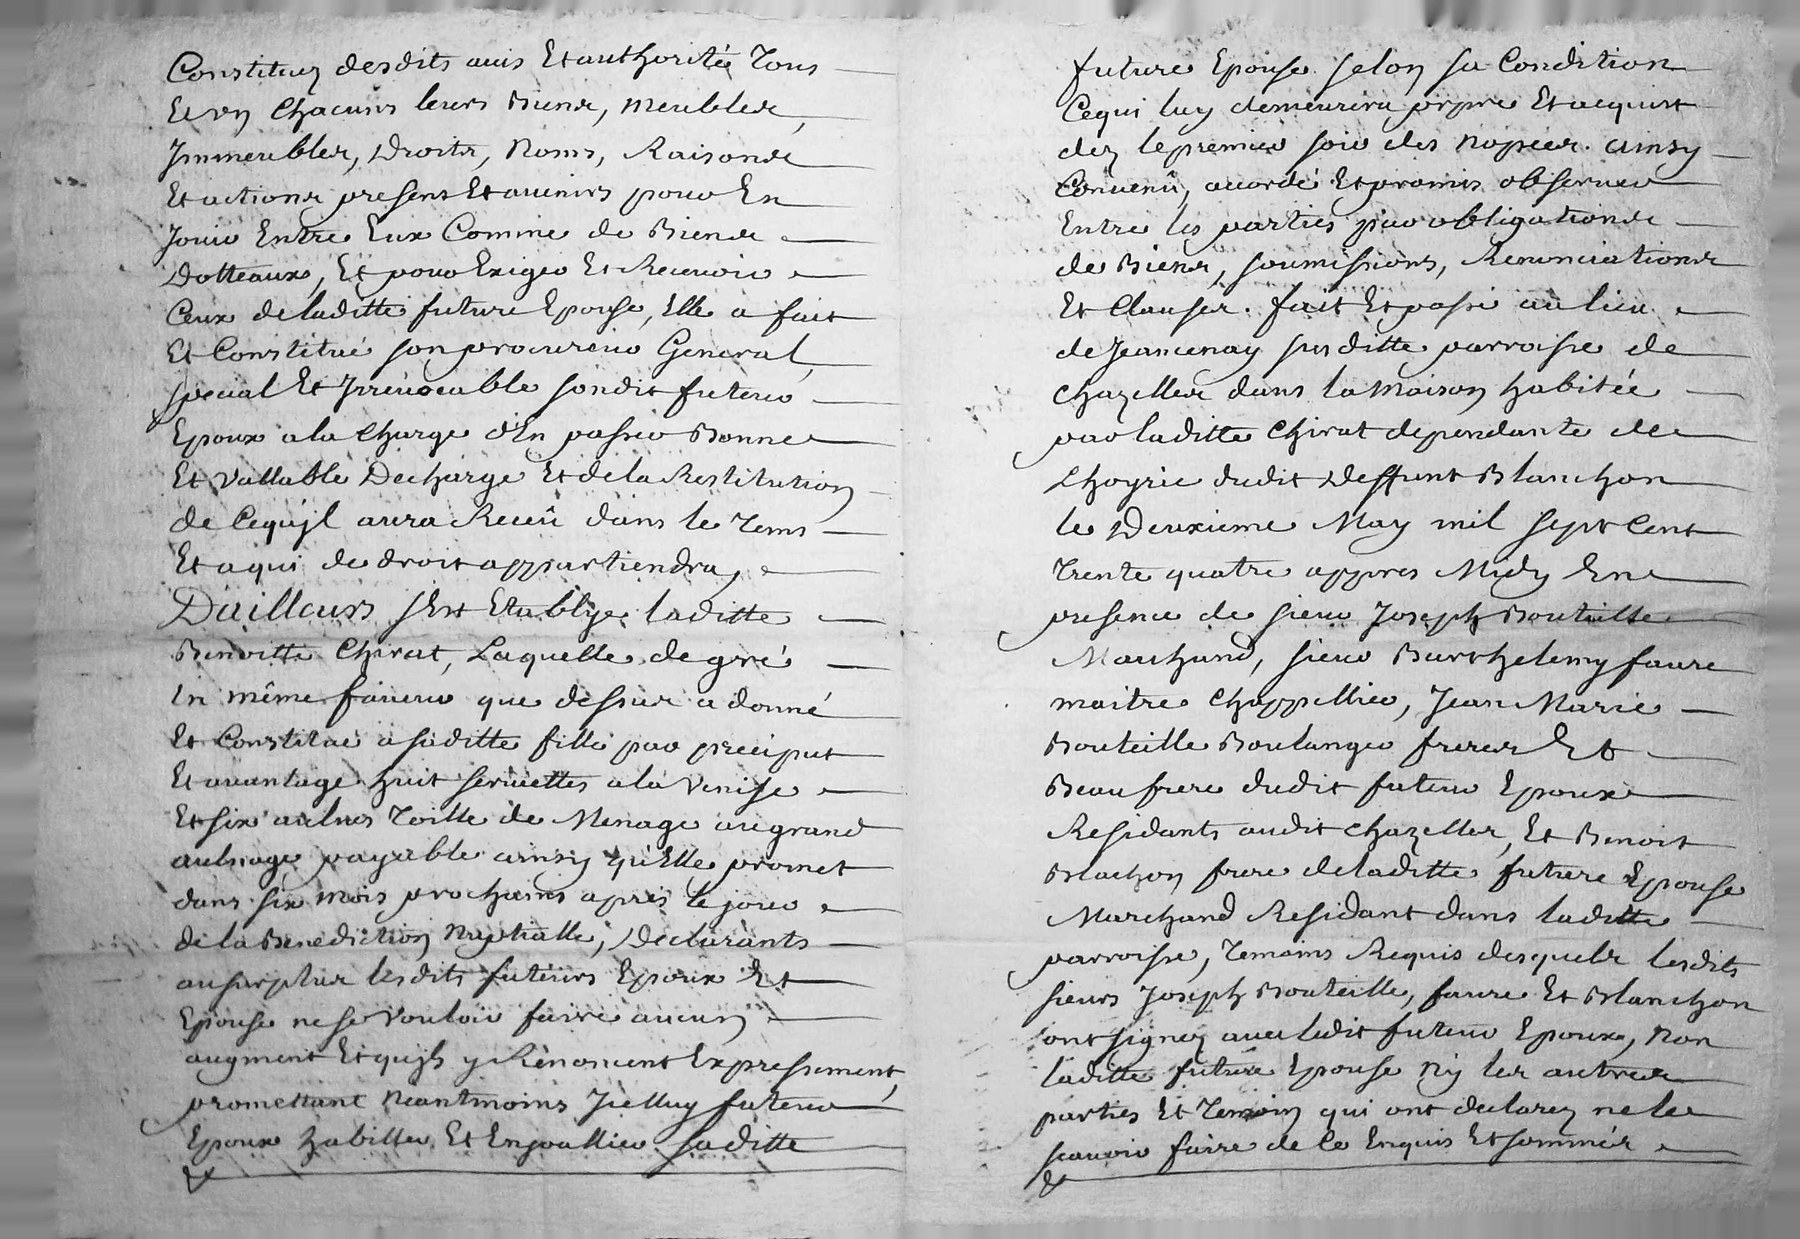 Constituez desdits avis Et authorité Tous
Et un Chacuns leurs Biens, Meubles,
Immeubles, Droits, Noms, Raisons
Et actions presens Et avenirs pour En
Jouir Entre Eux Comme de Biens
Dotteaux, Et pour Exiger Et Recevoir
Ceux de laditte future Epouse, Elle a fait
Et Constitué son procureur General,
special Et Irrévocable sondit futeur
Epoux a la Charge d'En passer Bonne
Et Vallable Decharge Et de la Restitution
de Cequ'jl aura Receû dans le Tems
Et a qui de droit appartiendra,
D'ailleurs s'Est Etablye laditte
Benoitte Chirat, Laquelle de gré
En même faveur que dessus a donné
Et Constitué a saditte fille par preciput
Et avantage huit serviettes a la Venise
Et six aulnes Toille de Menage au grand
aulnage payable ainsy qu'Elle promet
dans six mois prochains apres le jour
de la Benediction Nuptialle, Declarants
au surplus lesdits futeurs Epoux Et
Epouse ne se Vouloir faire aucun
augment Et qu'jls y Renoncent Expressement,
promettant Neantmoins Jcelluy futeur
Epoux habiller Et Enjoallier saditte
future Epouse selon sa Condition
Cequi luy demeurera propre Et acquist
dez le premier soir des Nopces. ainsy
Convenû, accordé Et promis observer
Entre les parties par obligations
de Biens, soumissions, Renonciations
Et Clauses. fait Et passé au lieu
de Jeancenay susditte parroisse de
Chazelles dans la Maison habitée
par laditte Chirat dependante de
Lhoyrie dudit Deffunt Blanchon
le Deuxieme May mil sept Cent
Trente quatre appres Midy En
presence de sieur Joseph Bouteille
Marchand, sieur Barthelemy faure
maitre Chappellier, Jean Marie
Bouteille Boulanger freres Et
Beaufrere dudit futeur Epoux
Residants audit Chazelles, Et Benoit
Blachon frere de laditte future Epouse
Marchand Residant dans laditte
parroisse, Temoins Requis desquels lesdits
sieurs Joseph Bouteille, faure Et Blanchon
ont signez avec ledit futeur Epoux, Non
laditte future Epouse Ny les autres
parties Et Temoin qui ont declarez ne le
scavoir faire de Ce Enquis Et sommés